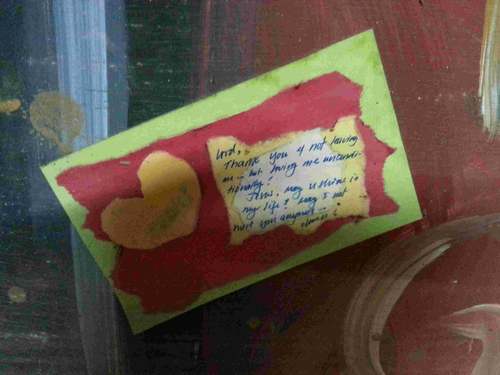 Lord,
Thank you 4 not leaving
me... but loving me uncondi-
tionally!
Jesus, may u shine in
my life! May I not
hurt you anymore...